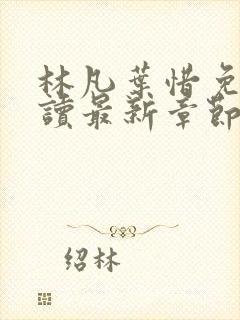 林凡葉惜免
讀最新章節
绍林